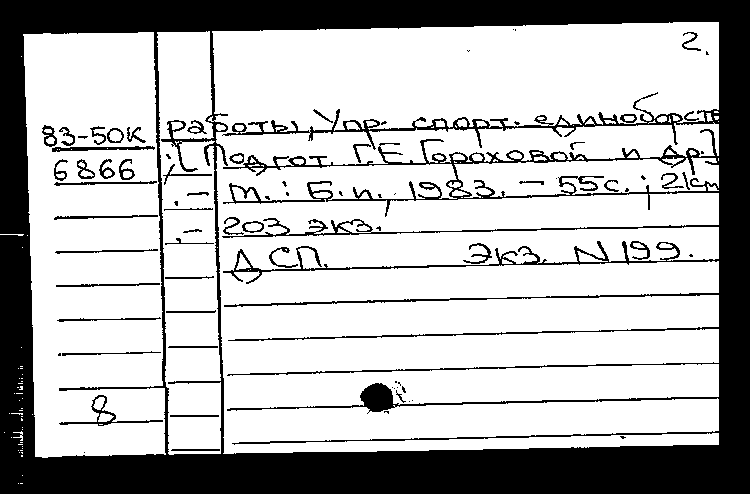 2.
83-50К работы, Упр. спорт. единоборств
6866 ; [Подгот. Г.Е. Гороховой и др.]
.- М. : Б.и., 1983. - 55с. ; 21см
.- 203 экз.
ДСП. Экз. N 199.
8